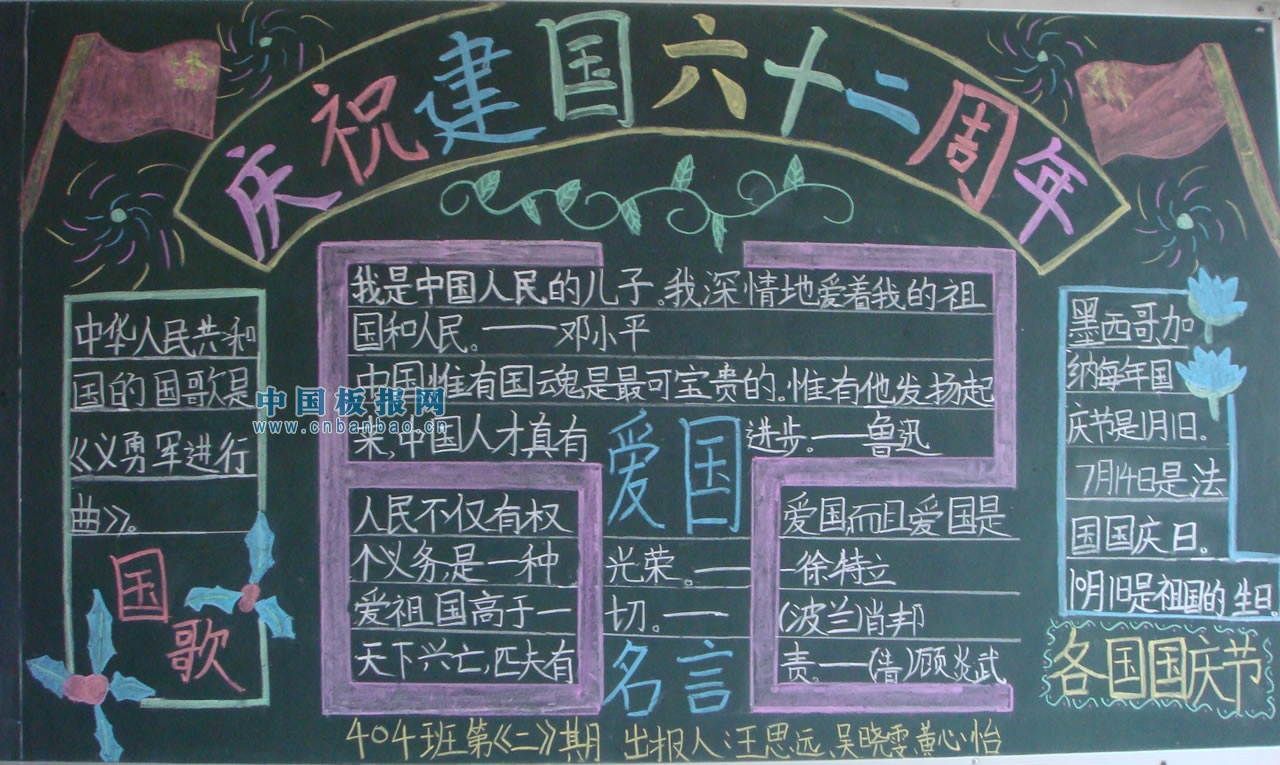 庆祝建国六十二周年
中华人民共和
国的国歌是
《义勇军进行
曲》。
国歌
我是中国人民的儿子。我深情地爱着我的祖
国和人民。——邓小平
中国惟有国魂是最可宝贵的。惟有他发扬起
来,中国人才真有
进步。——鲁迅
爱国
人民不仅有权
爱国,而且爱国是
个义务,是一种
光荣。——徐特立
爱祖国高于一
切。——(波兰)肖邦
天下兴亡,匹夫有
责。——(清)顾炎武
名言
墨西哥加
纳每年国
庆节是1月1日。
7月14日是法
国国庆日。
10月1日是祖国的生日
各国国庆节
404班第《二》期 出报人:王思远、吴晓雯、黄心怡
中国板报网
www.cnbanbao.cn